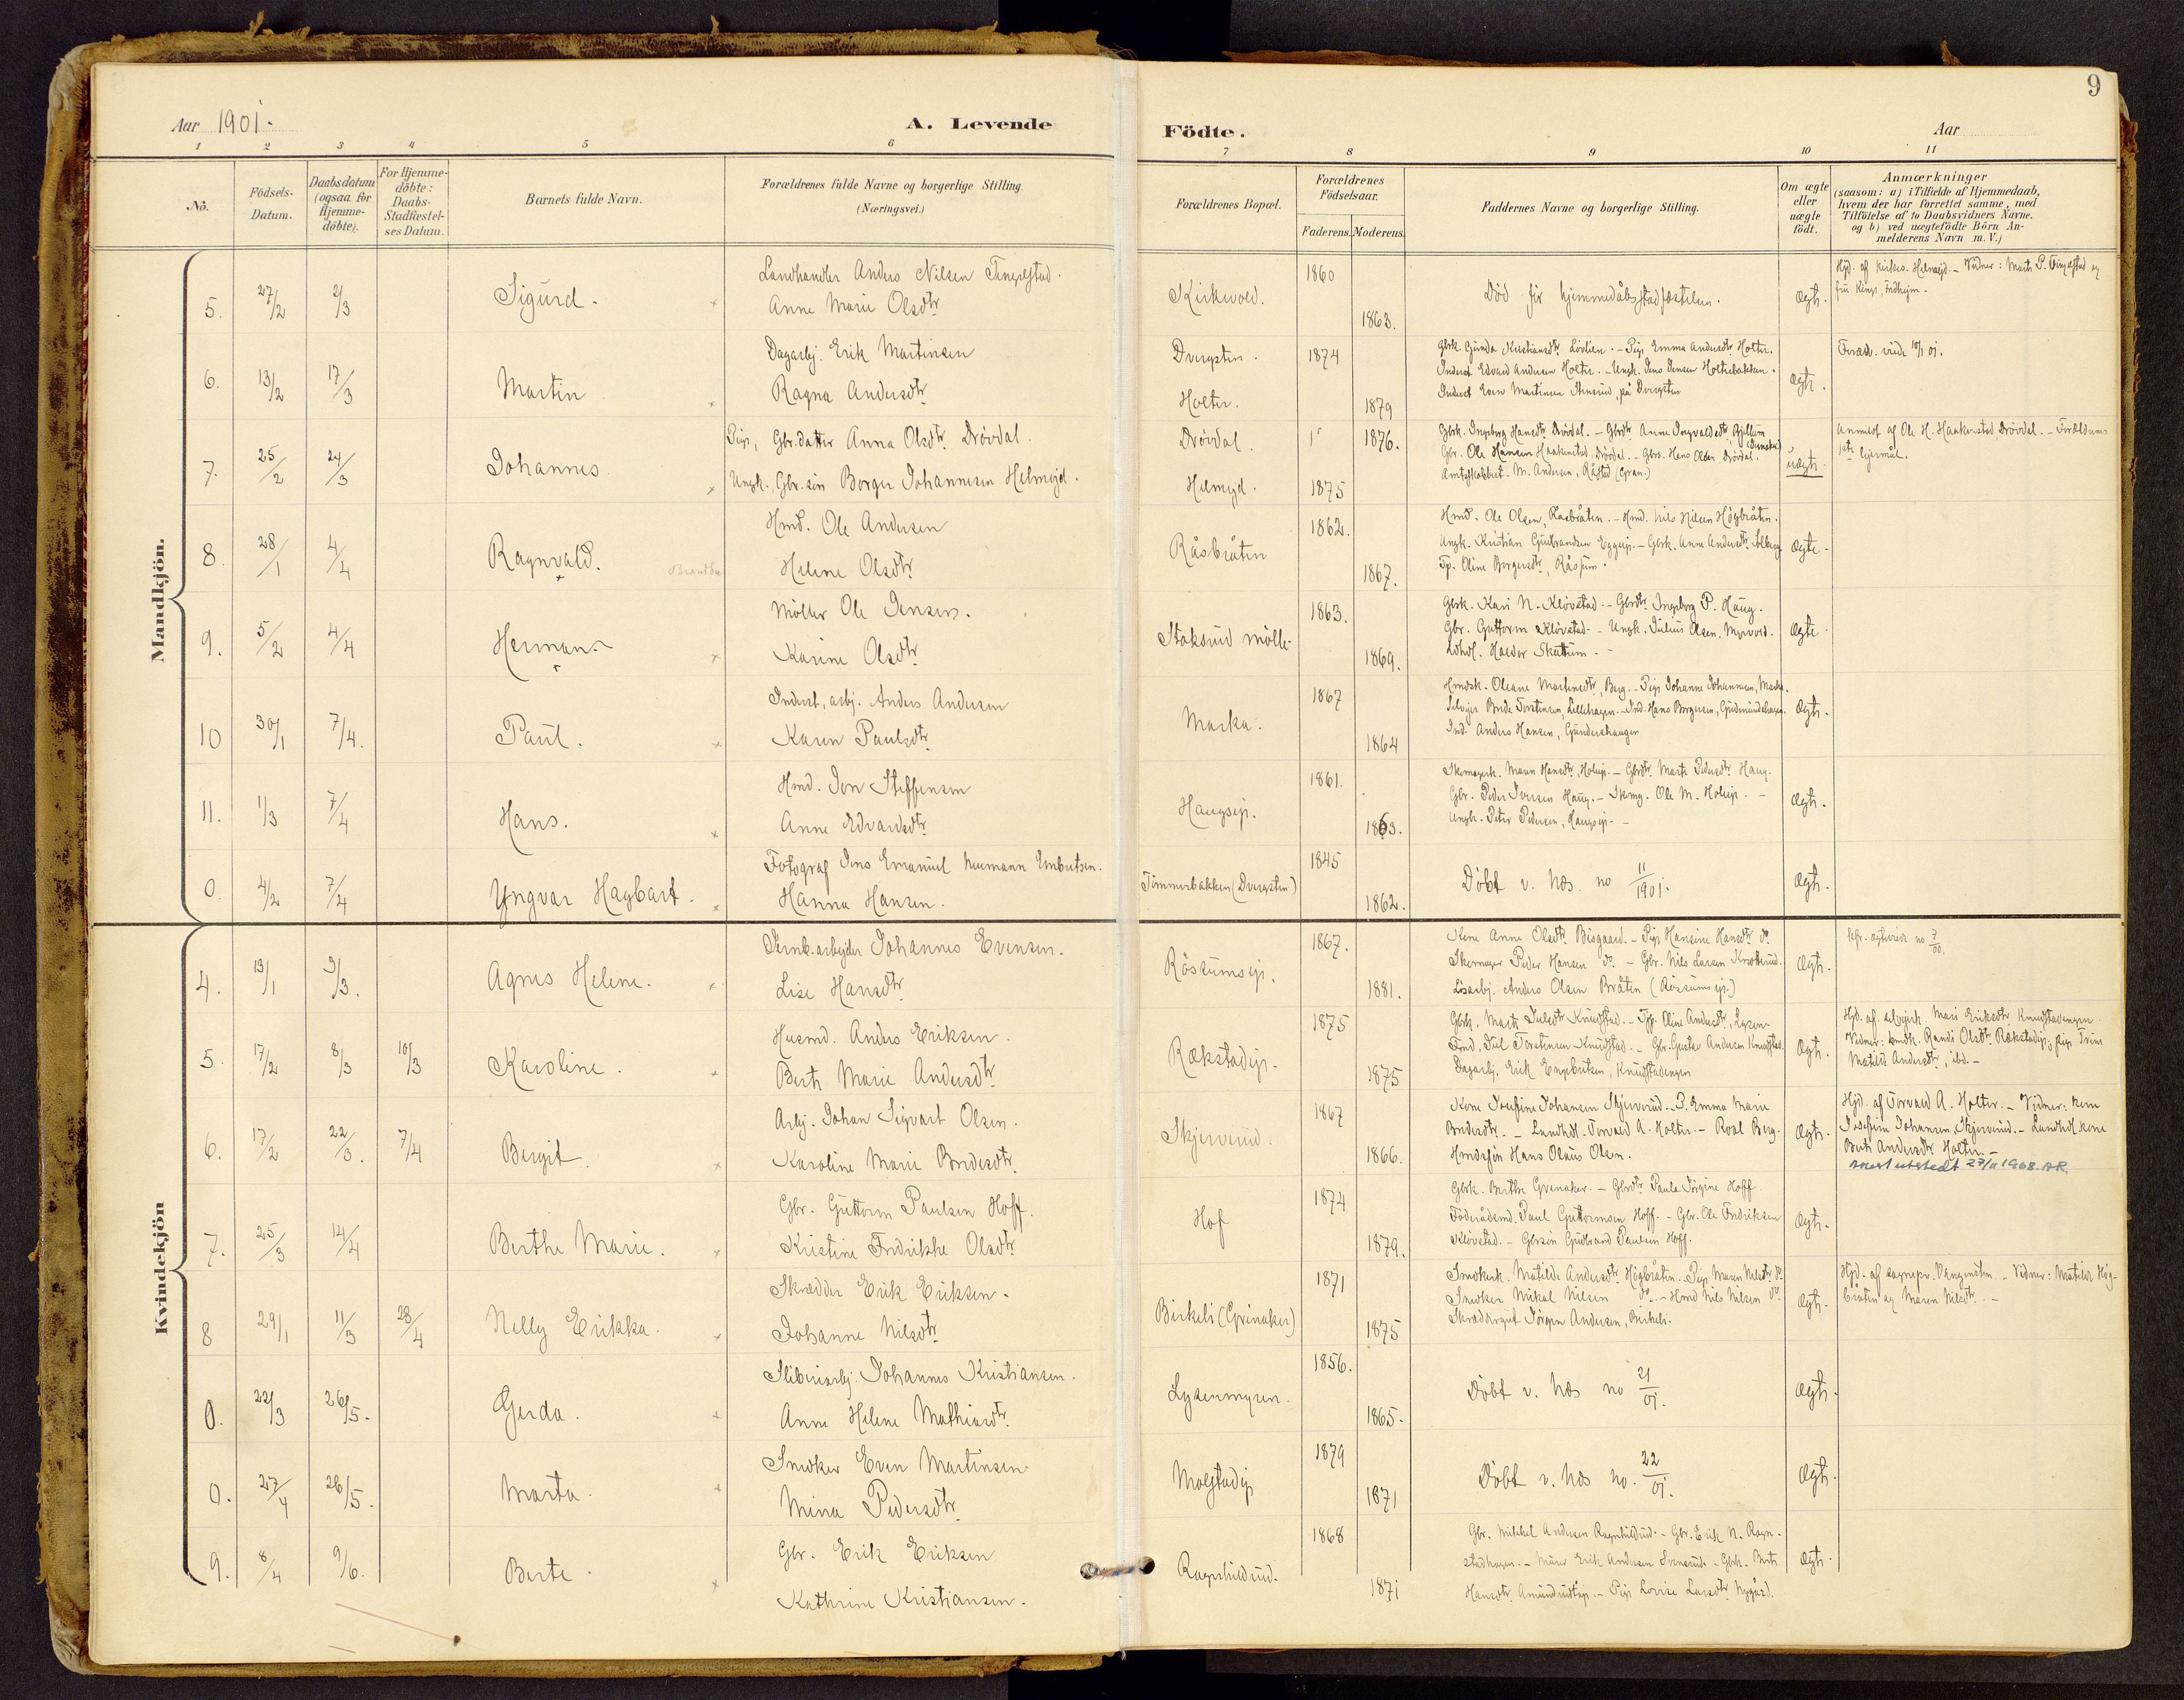 9
Aar 1901.
A. Levende
Födte.
Aar
1 2 3 4 5 6 7 8 9 10 11
No.
Födsels-Datum.
Daabsdatum (ogsaa for Hjemme-döbte).
For Hjemme-döbte: Daabs-Stadfæstel-ses Datum.
Barnets fulde Navn.
Forældrenes fulde Navne og borgerlige Stilling. (Næringsvei.)
Forældrenes Bopæl.
Forældrenes Födselsaar.
Faderens. Moderens.
Faddernes Navne og borgerlige Stilling.
Om ægte eller uægte födt.
Anmærkninger
(saasom: a) i Tilfælde af Hjemmedaab,
hvem der har forrettet samme, med
Tilföielse af to Daabsvidners Navne.
og b) ved uægtefödte Börn An-
melderens Navn m. V.)
Mandkjön.
5. 27/2 2/3 Sigurd.
Landhandler Anders Nilsen Tingelstad.
Anne Marie Olsdtr.
Kirkevold. 1860 1863.
Död för hjemmedåbsstadfæstelsen.
Ægte.
6. 13/2 17/3 Martin
Dagarbj. Erik Martinsen
Ragna Andersdtr.
Dvergsten. Holter. 1874 1879
Gbrk. Gunda Kristiansdtr. Lövlien. - Pige Emma Andersdtr. Holter.
Inderst Edvard Andersen Holter. - Ungk. Jens Jensen Holterbakken.
Inderst Even Martinsen Stensrud, på Dvergsten
Ægte.
Foræld. viede 10/1 01.
7. 25/2 24/3 Johannes.
Pige, Gbr.datter Anna Olsdtr. Drövdal.
Ungk., Gbr.sön Borger Johannesen Helmeijd.
Drövdal. Helmeijd. 1876. 1875
Gbrk. Ingeborg Hansdtr. Drövdal. - Gbrdtr. Anne Ingvaldsdtr. Gjellum
Gbr. Ole Hansen Haakenstad, Drövdal. - Gbrs. Hans Olsen Drövdal.
uægte.
Anmeldt af Ole H. Haakenstad Drövdal. - Forældrenes
1ste leiermål.
8. 28/1 4/4 Ragnvald.
Brandbu
Hmd. Ole Andersen
Helene Olsdtr.
Råsbråten 1862. 1867.
Hmd. Ole Olsen, Råsbråten. - Hmd. Nils Nilsen Högbråten.
Ungk. Kristian Gudbrandsen Eggeeje. - Gbrk. Anna Andersdtr. Solberg
Tp. Oline Borgersdtr., Råssum.
Ægte.
9. 5/2 4/4 Herman.
Möller Ole Jensen.
Karine Olsdtr.
Staksrud mölle 1863. 1869.
Gbrk. Kari N. Klövstad. - Gbrdtr. Ingeborg P. Haug.
Gbr. Guttorm Klövstad. - Ungk. Julius Olsen, Myrvold.
Ldhdl. Halvor Skattum. -
Ægte
10 30/1 7/4. Paul.
Inderst, arbj. Anders Andersen
Karen Paulsdtr.
Marka. 1867 1864
Selvejer Brede Torstensen, Lillehagen. - Ind. Hans Borgersen, Gudmundshagen.
Ind. Anders Hansen, Gundershaugen
Ægte.
11. 1/3 7/4 Hans.
Hmd. Iver Steffensen
Anne Edvardsdtr.
Haugseje. 1861. 1863.
Skomagerk. Maren Hansdtr., Holeje. - Gbrdtr. Marte Pedersdtr. Haug.
Gbr. Peder Iversen Haug. - Skomg. Ole M. Holeje. -
Ungk. Peter Pedersen, Haugseje. -
Ægte.
0. 4/2 7/4 Yngvar Hagbart.
Fotograf Jens Emanuel Neumann Embretsen.
Hanna Hansen.
Timmerbakken (Dvergsten) 1845 1862.
Döbt v. Næs. no 11/1901.
Ægte.
Kvindekjön
4. 13/1 3/3. Agnes Helene.
Jernb.arbejder Johannes Evensen.
Lise Hansdtr.
Rössumseje. 1867. 1881.
Kone Anne Olsdtr. Bisgaard. - Pige Hansine Hansdtr. do.
Skomager Peder Hansen do. - Gbr. Nils Larsen
Anders Olsen Bråten (Rössums eje.)
Ægte.
5. 17/2 8/3 10/3 Karoline.
Husmd. Anders Eriksen.
Berte Marie Andersdtr.
Rækstadeje. 1875 1875
Dagarbj. Erik Engebretsen, Knudstadengen
Ægte.
Hjd. af selvejerk. Mari Eriksdtr. Knudstadengen.
Vidner: hmdk. Randi Olsdtr. Rækstadeje, pige Trine
Matilde Andersdtr., ibid. -
6. 17/2 22/3. 7/4 Bergit
Arbj. Johan Sigvart Olsen.
Karoline Marie Bredesdtr.
Skjerverud. 1867 1866.
Kone Josefine Johansen Skjerverud. - P. Emma Marie
Bredesdtr. - Landhdl. Torvald A. Holter. - Roal Berg.
Hmdssön Hans Olaus Olsen.
Ægte.
Hjd. af Torvald A. Holter. - Vidner: kone
Josefine Johansen, Skjerverud. - Landhdl.kone
Berte Andersdtr. Holter. -
attest utstedt 27/11 1968. AR.
7. 25/3 14/4 Berthe Marie.
Gbr. Guttorm Paulsen Hoff.
Kristine Fredrikke Olsdtr.
Hof 1874 1879.
Gbrk. Berthe Grenaker. - Gbrdtr. Paula Jörgine Hoff
Föderådsmd. Paul Guttormsen Hoff. - Gbr. Ole Fredriksen
Klövstad. - Gbrsön Gudbrand Paulsen Hoff.
Ægte.
8 29/1 11/3 28/4 Nelly Erikka.
Skrædder Erik Eriksen.
Johanne Nilsdtr.
Birkeli (Grinaker) 1871 1875
Snedkerk. Matilde Andersdtr. Högbråten. - Pige Maren Nilsdtr. do.
Snedker Mikal Nilsen do. - Hmd Nils Nilsen do.
Skræddergut Jörgen Andersen, Birkeli.
Ægte.
Hjd. af sognepr. Vangensten. - Vidner: Matilde Hög-
bråten og Maren Nilsdtr. -
0. 22/3 26/5. Gerda.
Sliberiarbj. Johannes Kristiansen.
Anne Helene Mathiasdtr.
Lysenmyren. 1856. 1865.
Döbt v. Næs no 21/01.
Ægte.
0. 27/4 26/5. Marta.
Snedker Even Martinsen
Mina Pedersdtr.
Molstadeje 1879 1871
Döbt v. Næs no. 22/01.
Ægte.
9. 8/4 9/6. Berte.
Gbr. Erik Eriksen
Kathrine Kristiansen.
Ragnhildrud. 1868 1871
Gbr. Mikkel Andersen Ragnhildrud. - Gbr. Erik N. Rogn-
stadhagen. - Murer Erik Andersen Svensrud. - Gbrk. Berte
Hansdtr. Amundrudseje. - Pige Lovise Larsdtr. Nygård.
Ægte.